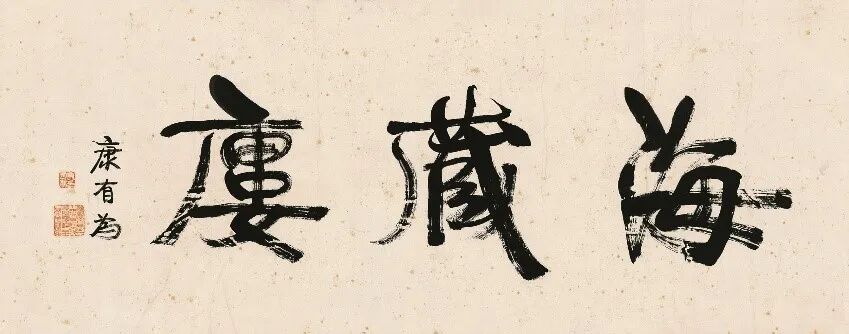 海藏廔
康有為